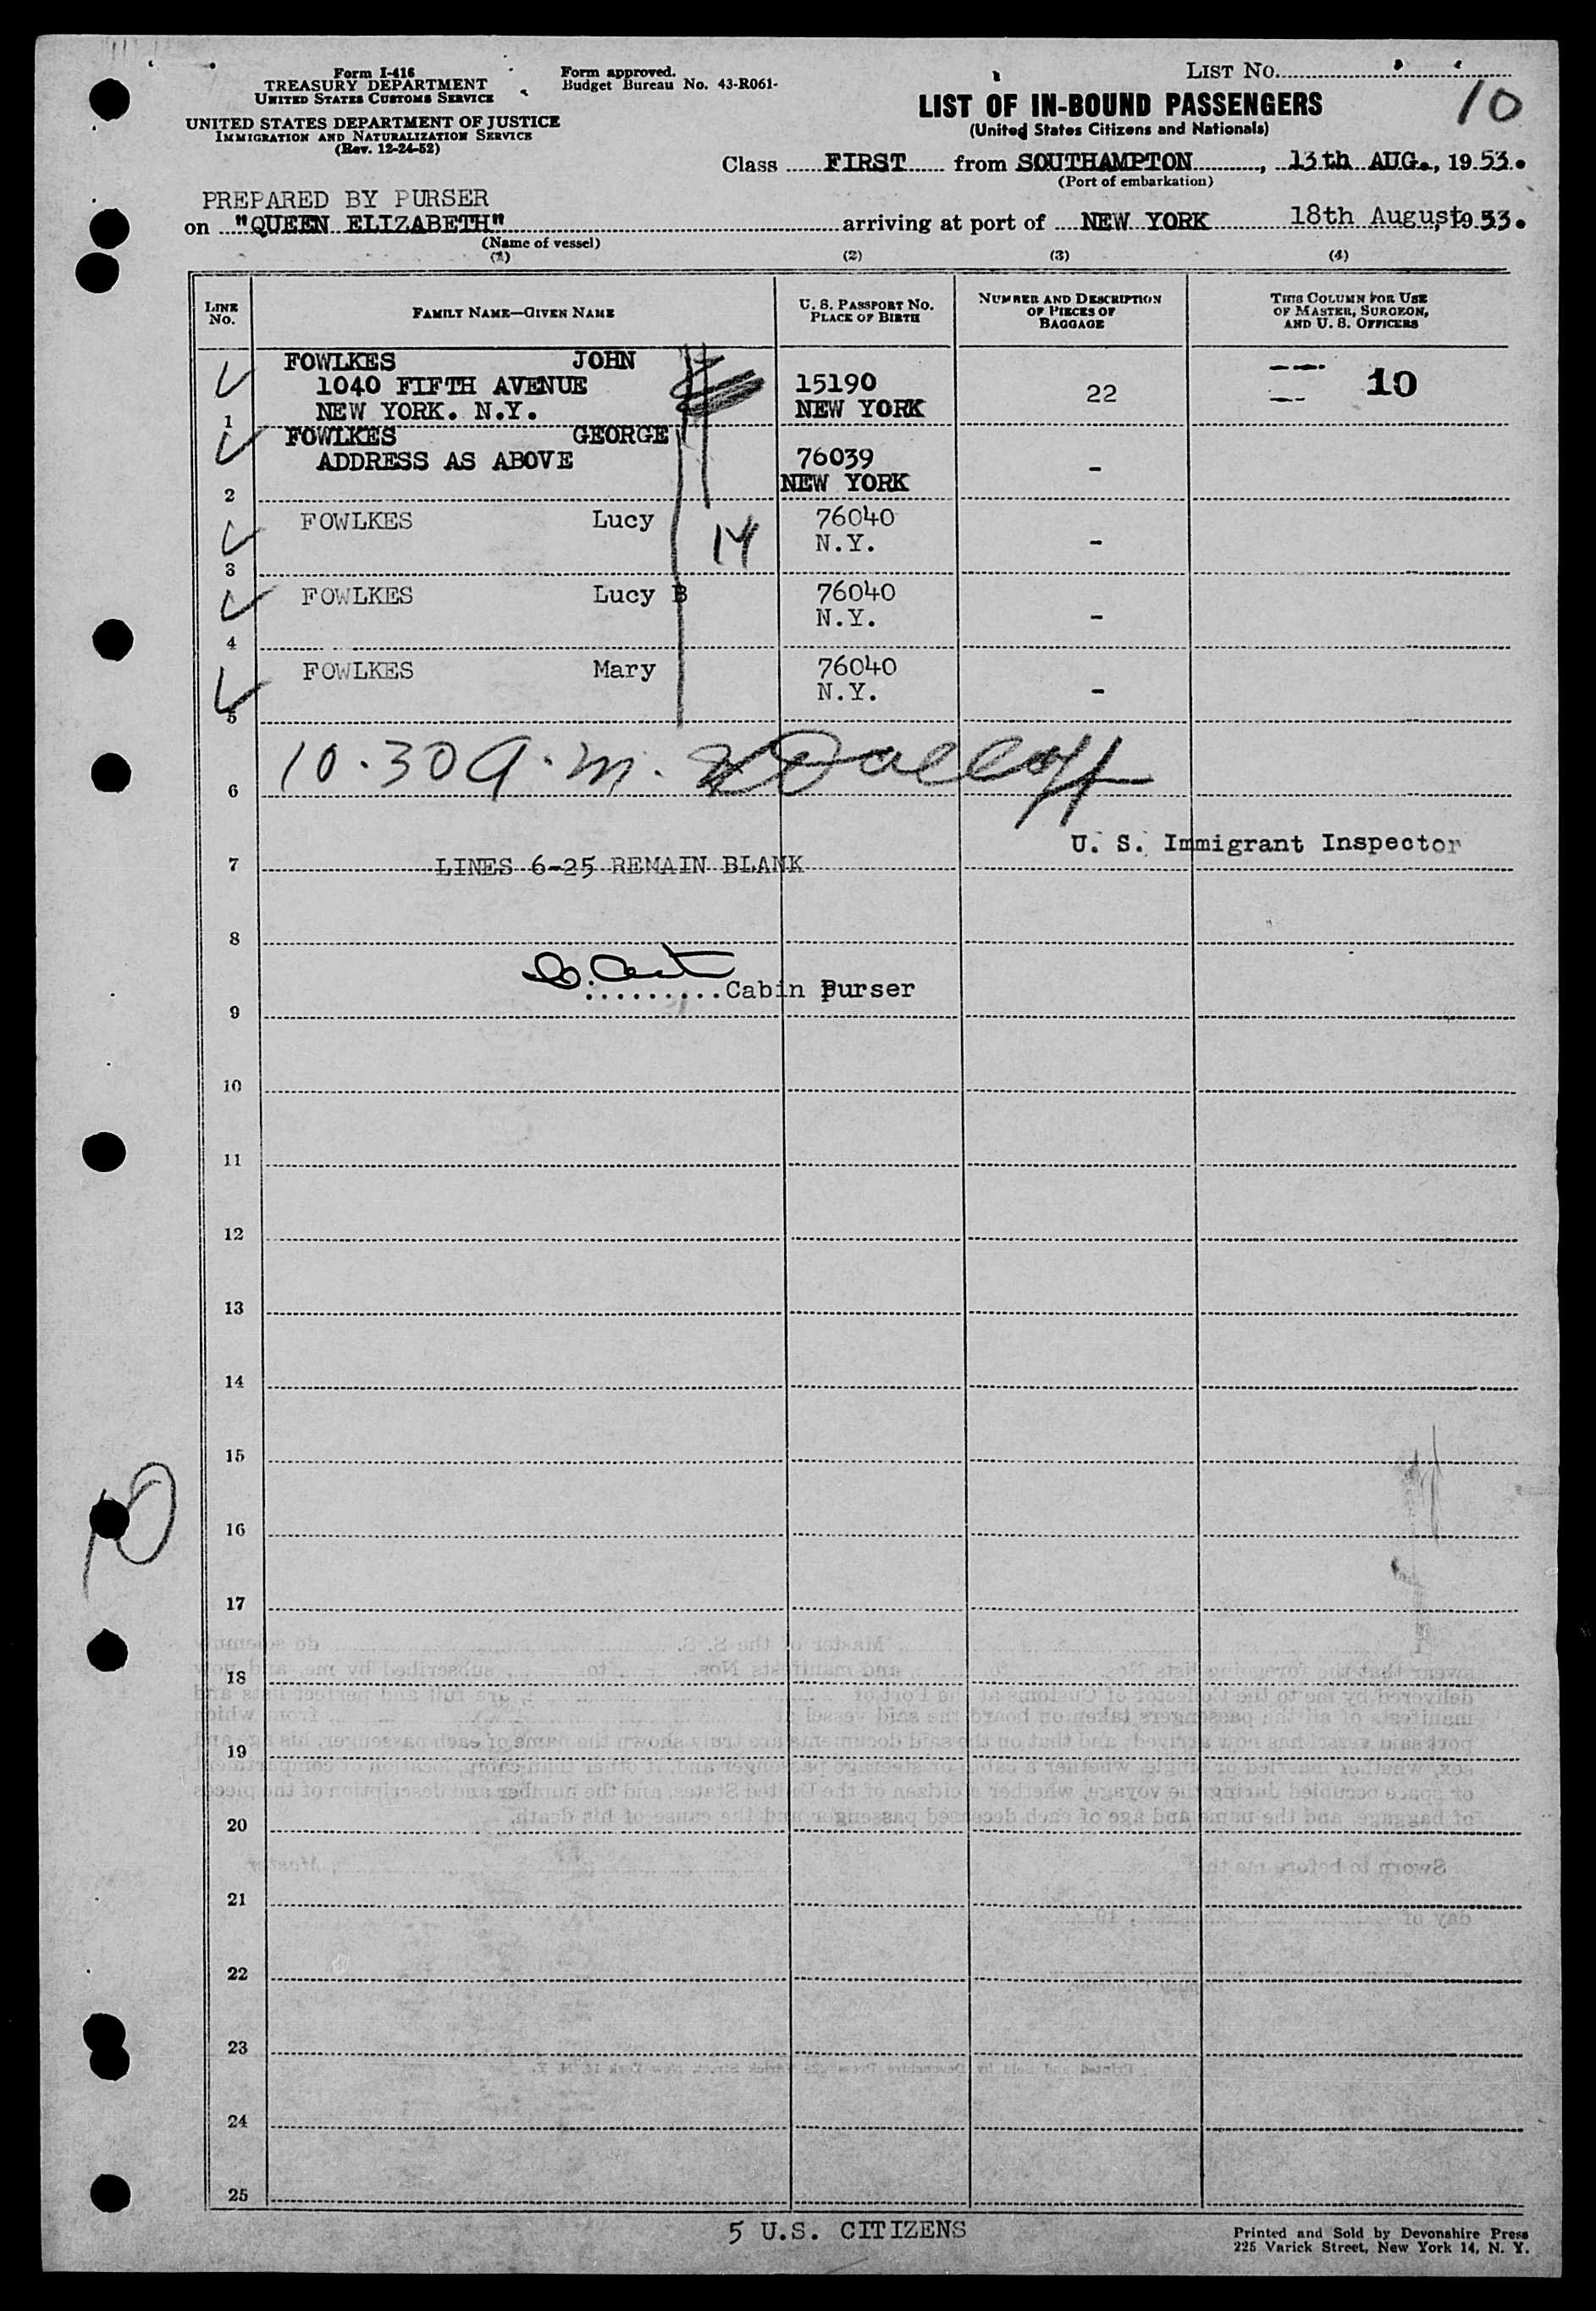 Form I-416
TREASURY DEPARTMENT
UNITED STATES CUSTOMS SERVICE
Form approved.
Budget Bureau No. 43-R061-
UNITED STATES DEPARTMENT OF JUSTICE
IMMIGRATION AND NATURALIZATION SERVICE
(Rev. 12-24-52)
LIST NO.
10
LIST OF IN-BOUND PASSENGERS
(United States Citizens and Nationals)
Class FIRST from SOUTHAMPTON, 13th AUG., 1953.
(Port of embarkation)
PREPARED BY PURSER
on "QUEEN ELIZABETH" arriving at port of NEW YORK 18th August, 1953.
(Name of vessel)
(1) (2) (3) (4)
LINE NO. FAMILY NAME—GIVEN NAME U. S. PASSPORT NO. PLACE OF BIRTH NUMBER AND DESCRIPTION OF PIECES OF BAGGAGE THIS COLUMN FOR USE OF MASTER, SURGEON, AND U. S. OFFICERS
FOWLKES JOHN
1040 FIFTH AVENUE 15190 22 10
1 NEW YORK. N.Y. NEW YORK
FOWLKES GEORGE
ADDRESS AS ABOVE 76039 -
2 NEW YORK
FOWLKES Lucy 14 76040
N.Y. -
3
FOWLKES Lucy B 76040
N.Y. -
4
FOWLKES Mary 76040
N.Y. -
5
6 10.30 a.m.
U. S. Immigrant Inspector
7 LINES 6-25 REMAIN BLANK
8
.........Cabin Purser
9
10
11
12
13
14
15
16
10
17
18
19
20
21
22
23
24
25
5 U.S. CITIZENS
Printed and Sold by Devonshire Press
225 Varick Street, New York 14, N. Y.